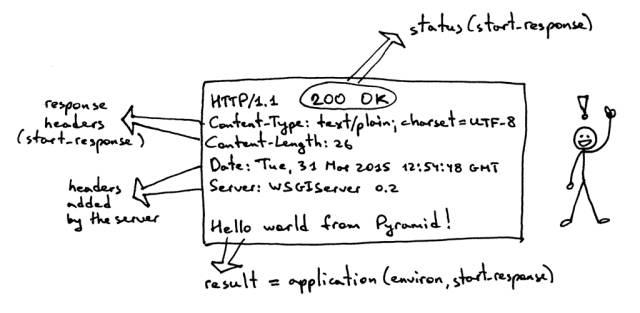 status (start_response)
HTTP/1.1 200 OK
Content-Type: text/plain; charset=UTF-8
Content-Length: 26
Date: Tue, 31 Mar 2015 12:54:48 GMT
Server: WSGIServer 0.2
Hello world from Pyramid!
response
headers
(start_response)
headers
added
by the server
result = application(environ, start_response)
!